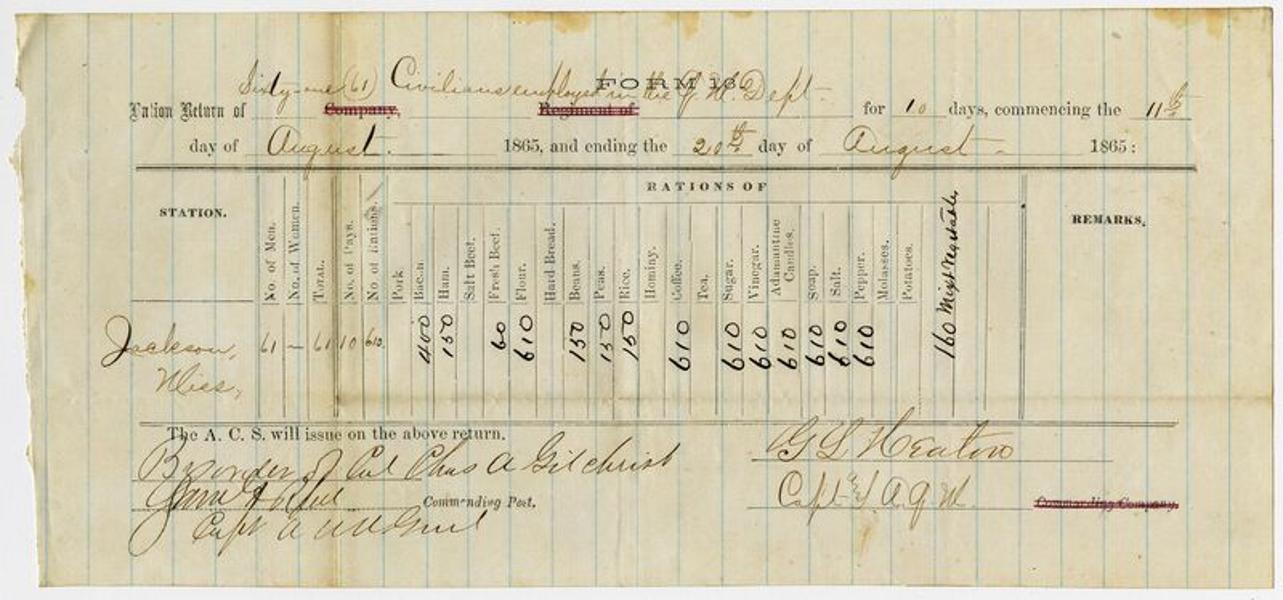 FORM 13.
Sixty-one (61) Civilians employed in the Q. M. Dept.
Ration Return of Company, Regiment of for 10 days, commencing the 11th
day of August. 1865, and ending the 20th day of August 1865:
STATION. RATIONS OF REMARKS.
No. of Men. No. of Women. TOTAL. No. of Days. No. of Rations. Pork Bacon. Ham. Salt Beef. Fresh Beef. Flour. Hard Bread. Beans. Peas. Rice. Hominy. Coffee. Tea. Sugar. Vinegar. Adamantine Candles. Soap. Salt. Pepper. Molasses. Potatoes. 160 Mixt Vegetable
Jackson, 61 — 61 10 610. 400 150 60 610 150 150 150 610 610 610 610 610 610 610
Miss,
The A. C. S. will issue on the above return.
By order of Col Chas A Gilchrist
Commanding Post.
Capt
G L Heaton
Capt & A. Q. M.
Commanding Company.